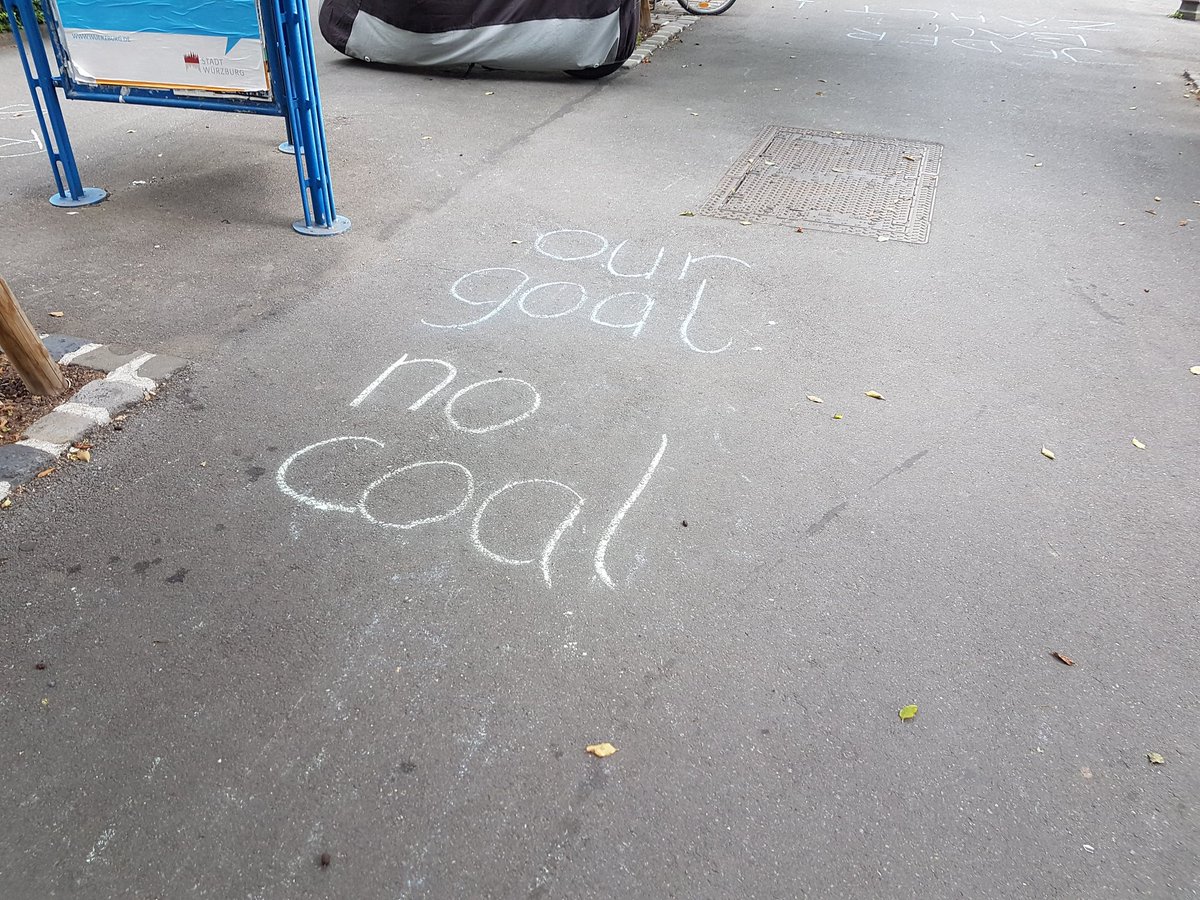 WWW.WUERZBURG.DE
STADT
WÜRZBURG
our
goal
no
coal